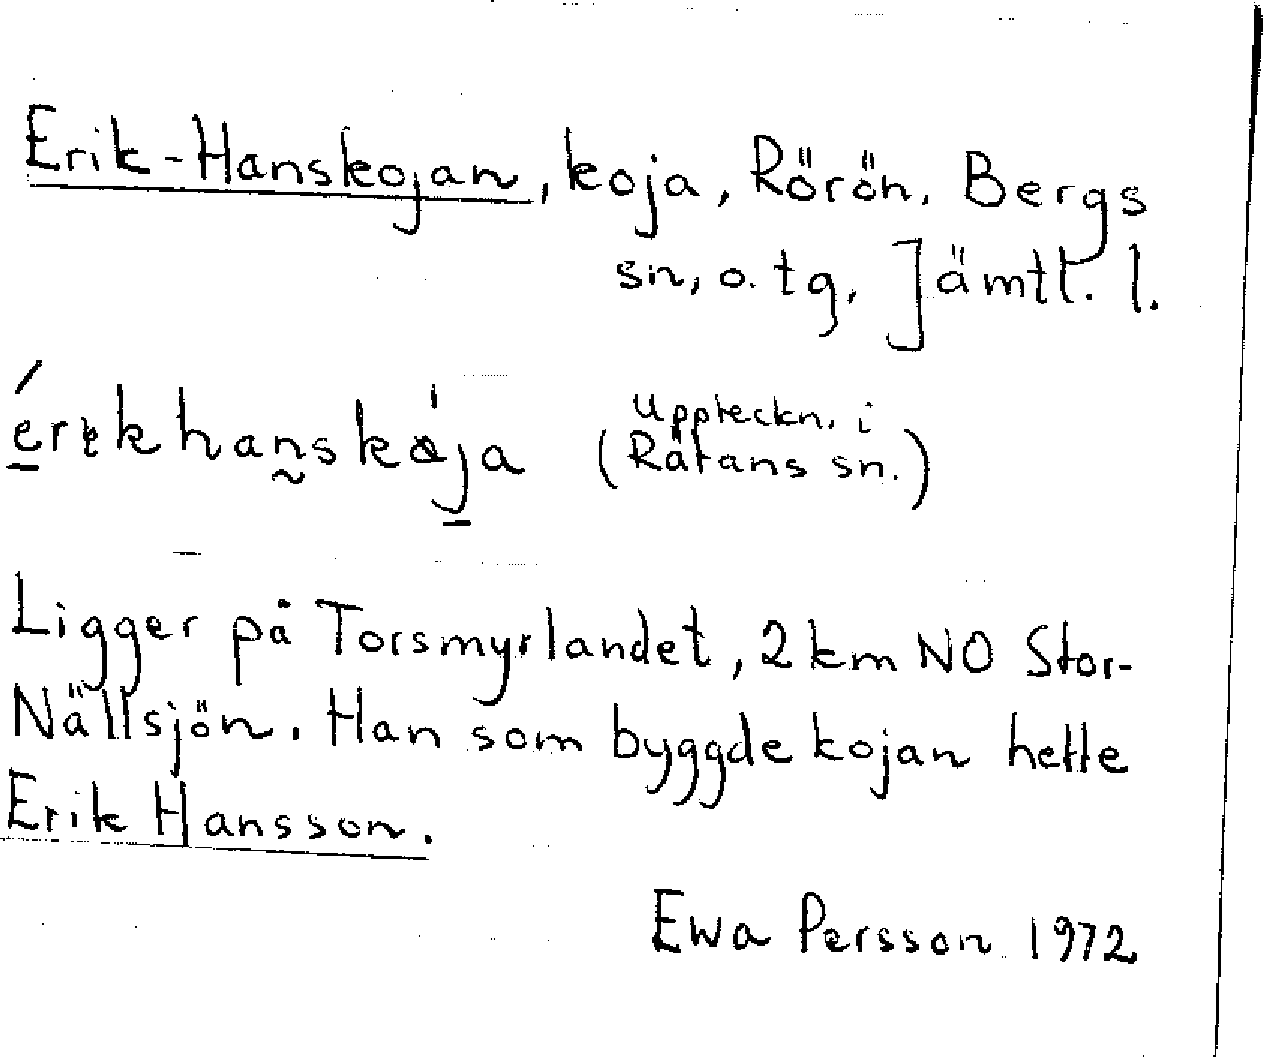 Erik-Hanskojan, koja, Rörön, Bergs
sn, o. tg, Jämtl. l.
Uppteckn. i
érɩkhanskȧja (Rätans sn.)
Ligger på Torsmyrlandet, 2 km NO Stor-
Nällsjön. Han som byggde kojan hette
Erik Hansson.
Ewa Persson 1972